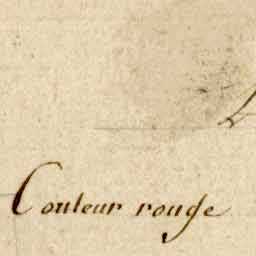 Couleur rouge